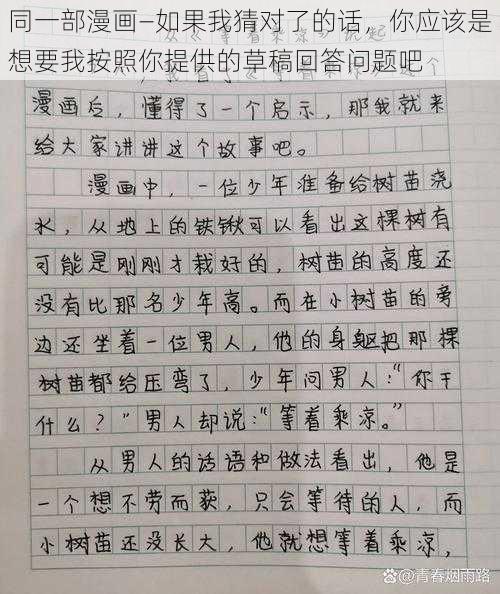 同一部漫画—如果我猜对了的话，你应该是
想要我按照你提供的草稿回答问题吧
漫画后，懂得了一个启示，那我就来
给大家讲讲这个故事吧。
漫画中，一位少年准备给树苗浇
水，从地上的铁锹可以看出这棵树有
可能是刚刚才栽好的，树苗的高度还
没有比那名少年高。而在小树苗的旁
边还坐着一位男人，他的身躯把那棵
树苗都给压弯了，少年问男人：“你干
什么？”男人却说：“等着乘凉。”
从男人的话语和做法看出，他是
一个想不劳而获，只会等待的人，而
小树苗还没长大，他就想等着乘凉，
青春烟雨路